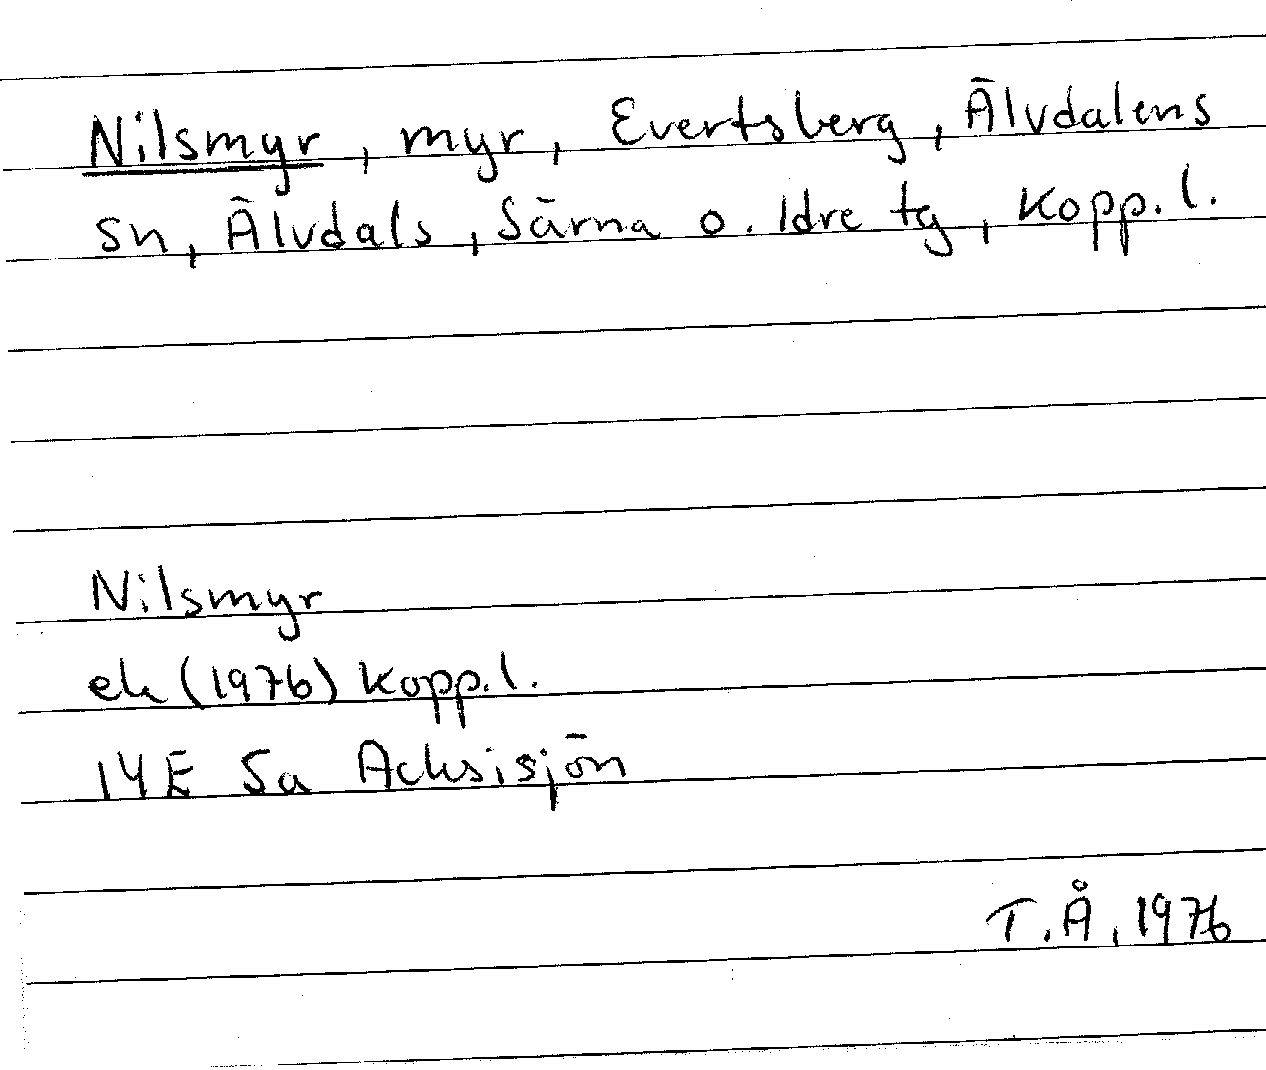 Nilsmyr, myr, Evertsberg, Älvdalens
sn, Älvdals, Särna o. Idre tg, Kopp. l.
Nilsmyr
ek (1976) Kopp. l.
14E Sa Acksisjön
T.Å, 1976